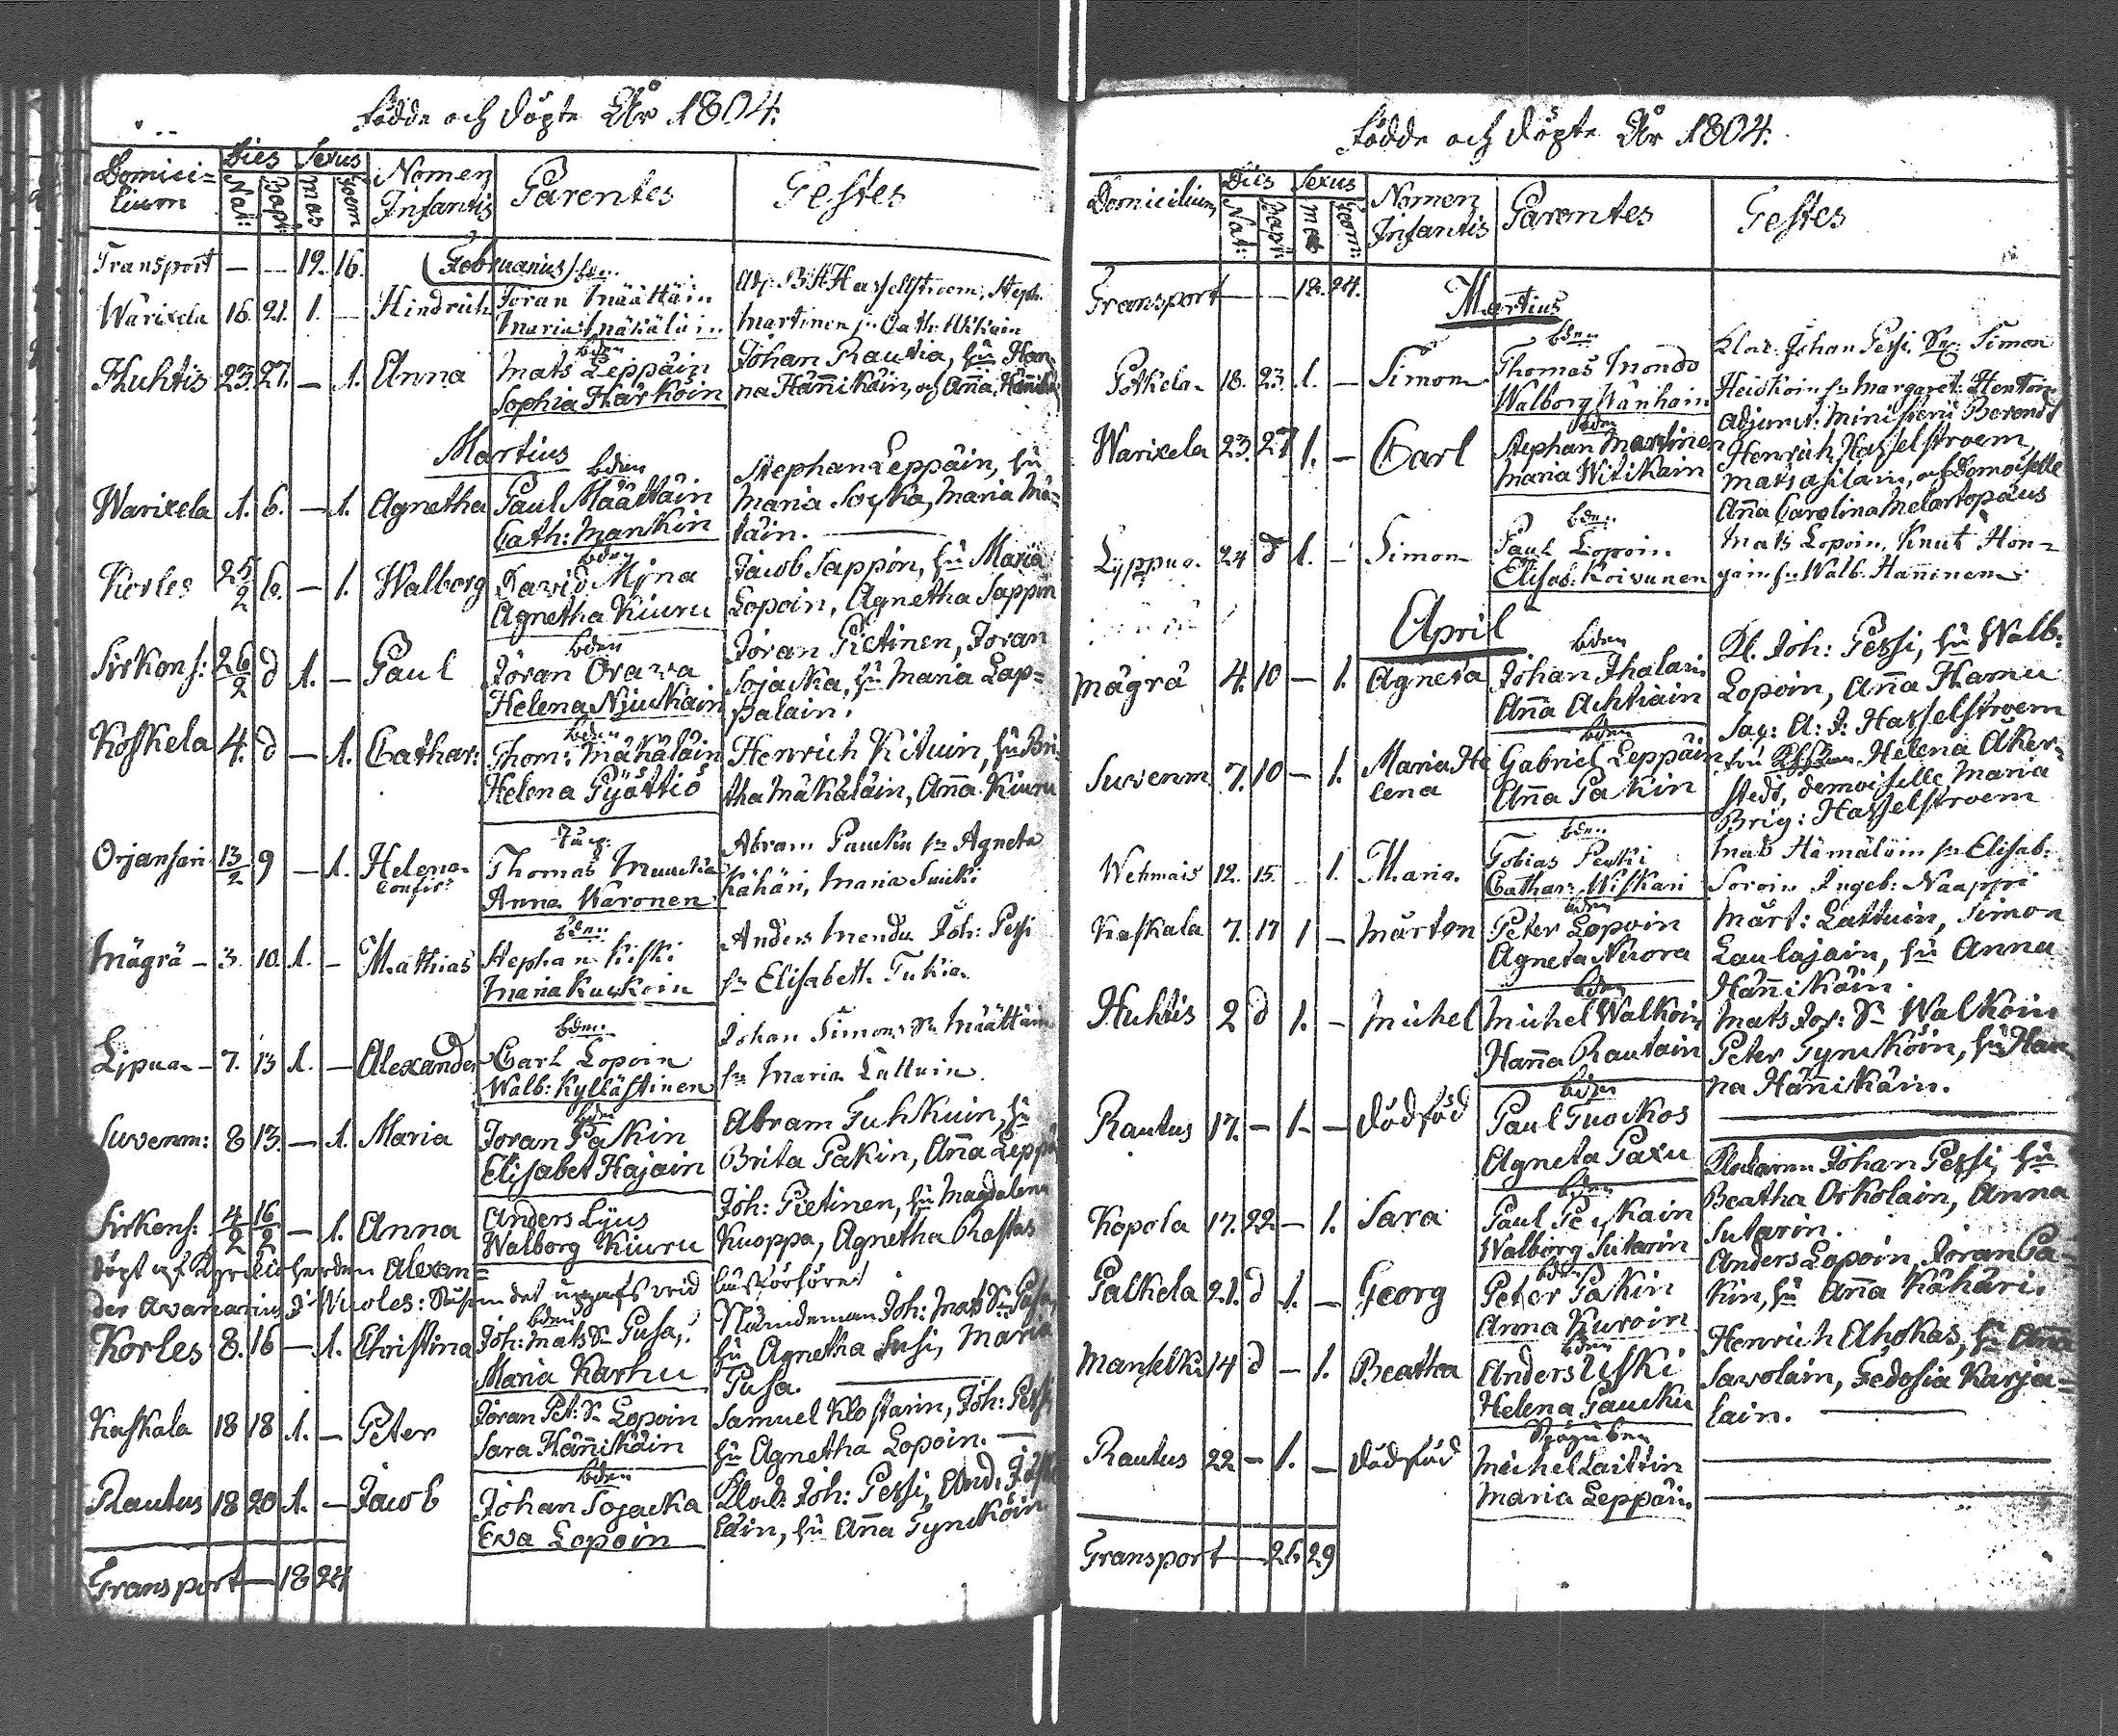 Födde och döpte År 1804.
Domici=
lium
Dies
Nat:
Bapt:
Sexus
Mas
Foem
Nomen
Infantis
Parentes
Testes
Transport — — 19. 16. (Februarius)
Warixela 16. 21. 1. — Hindrich
bdn.
Jöran Määttäin
Maria Mäkäläin
Adj. B H Hasselstroem, Steph.
Martinen, hu Cath.
Huhtis 23. 27. — 1. Anna
bdn
Mats Leppäin
Sophia Härköin
Johan Rautia, hu Han-
na Hänikäin, och Aña
Martius
Warixela 1. 6. — 1. Agnetha
bden
Paul Määttäin
Cath: Mankin
Stephan Leppäin, hu
Maria Sojska, Maria Mä=
täin.
Korles 25/2 6. — 1. Walborg
bden
David Myna
Agnetha Kiuru
Jacob Sappin, hu Maria
Lopoin, Agnetha Sappin
Sirkons: 26/2 d 1. — Paul
bden
Jöran Orawa
Helena Njuskain
Jöran Pietinen, Jöran
Sojacka, hu Maria Lap=
palain.
Koskela 4. d — 1. Cathar:
bden
Thom: Mäkäläin
Helena Pyöttiö
Henrich Kituin, hu Bri-
tha Mäkäläin, Aña Kiuru
Orjansari 13/2 9 — 1. Helena
Thomas
Anna Waronen
Abram Paucku hu Agneta
Kähäri, Maria
Mägrä — 3. 10. 1. — Mathias
bdn.
Stephan Kiski
Maria Kuckoin
Anders Mendu Joh: Pessi
hu Elisabeth Tukia
Lipua — 7. 13 1. — Alexander
bdn.
Carl Lopoin
Walb: Kyllästinen
Johan Simons Sn Määttäin
hu Maria Lattuin
Suvenm: 8 13. — 1. Maria
bdn
Jöran Pakin
Elisabet Hajain
Abram Tuhkuin, hu
Brita Pakin, Aña Leppä
Sirkens: 4/2 16/2 — 1. Anna
Anders Lyus
Walborg Kiuru
Joh: Pietinen, hu Magdalena
Kuoppa, Agnetha Rastas
döpt af Kyrkioherden Alexan=
der Avanarius
husförhöret
Korles 8. 16 — 1. Christina
bden
Joh: Mats Sn Pusa,
Maria Karhu
Nämdeman Joh: Mats Sn Pusa,
hu Agnetha Susi, Maria
Pusa.
Kaskala 18 18 1. — Peter
Jöran Pet: Sn Lopoin
Sara Hänikäin
Samuel Klostarin, Joh: Pessi
hu Agnetha Lopoin. —
Rautus 18 20 1. — Jacob
bden
Johan Sojacka
Eva Lopoin
Klock: Joh: Pessi, And:
läin, hu Aña Tynsköin
Transport — 18 24
Födde och döpte År 1804.
Domicilium
Dies
Nat:
Bapt:
Sexus
Mas
Foem:
Nomen
Infantis
Parentes
Testes
Transport — — 18. 24.
Martius
Potkela 18. 23. 1. — Simon
bdn.
Thomas Mondo
Walborg Wänhain
Kloc. Johan Pessi, Simon
Heiskoin hu Margaret:
Warixela 23. 27 1. — Carl
bden
Stephan Martinen
Maria Witikain
Adjunct: Ministerii Berendt
Henrich Hasselstroem,
Mats asilain, och Demoiselle
Aña Carolina Melartopæus
Lyppua. 24 d 1. — Simon
bdn.
Paul Lopoin
Elisab: Koivunen
Mats Lopoin, Knut Hon=
gain hu Walb. Hanninen
April
Mägrä 4. 10 — 1. Agneta
bden
Johan Ihalain
Aña Achtiain
Kl. Joh: Pessi, hu Walb:
Lopoin, Aña Hamu
Suvenm 7. 10 — 1. Maria He
lena
bden
Gabriel Leppäin
Aña Pakin
Sac: A: J: Hasselstroem
fru Helena Aker=
stedt, demoiselle Maria
Brig: Hasselstroem
Wehmais 12. 15. 1. Maria
bdn.
Tobias Peuki
Cathar: Wiskari
Mats Hämäläin hu Elisab:
Soroin Ingeb: Naappi
Kaskala 7. 17 1 — Mårten
bden
Peter Lopoin
Agneta Nuora
Mårt: Lattuin, Simon
Laulajain, hu Anna
Hänikäin.
Huhtis 2 d 1. — Michel
bden
Michel Walkoin
Haña Rautain
Mats Sn Walkoin
Peter Tynsköin, hu Han
na Hänikäin.
Rautus 17. — 1. — dödfödd
bden
Paul Tuockos
Agneta Paxu
Kopola 17. 22 — 1. Sara
bden
Paul Peuskain
Walborg Sutarin
Klockaren Johan Pessi, hu
Beatha Orkolain, Anna
Sutarin.
Palkela 21. d 1. — Georg
bdn
Peter Pakin
Anna Kuroin
Anders Lopoin, Jöran Pa-
kin, hu Aña Kähäri.
Manselki 14 d — 1. Beatha
bden
Anders Uski
Helena Paucku
Henrich Ahokas, hu Aña
Savolain, Fedosia Karja=
lain. —
Rautus 22 — 1. — dödfödd
Michel Laitin
Maria Leppäin
Transport — 26 29